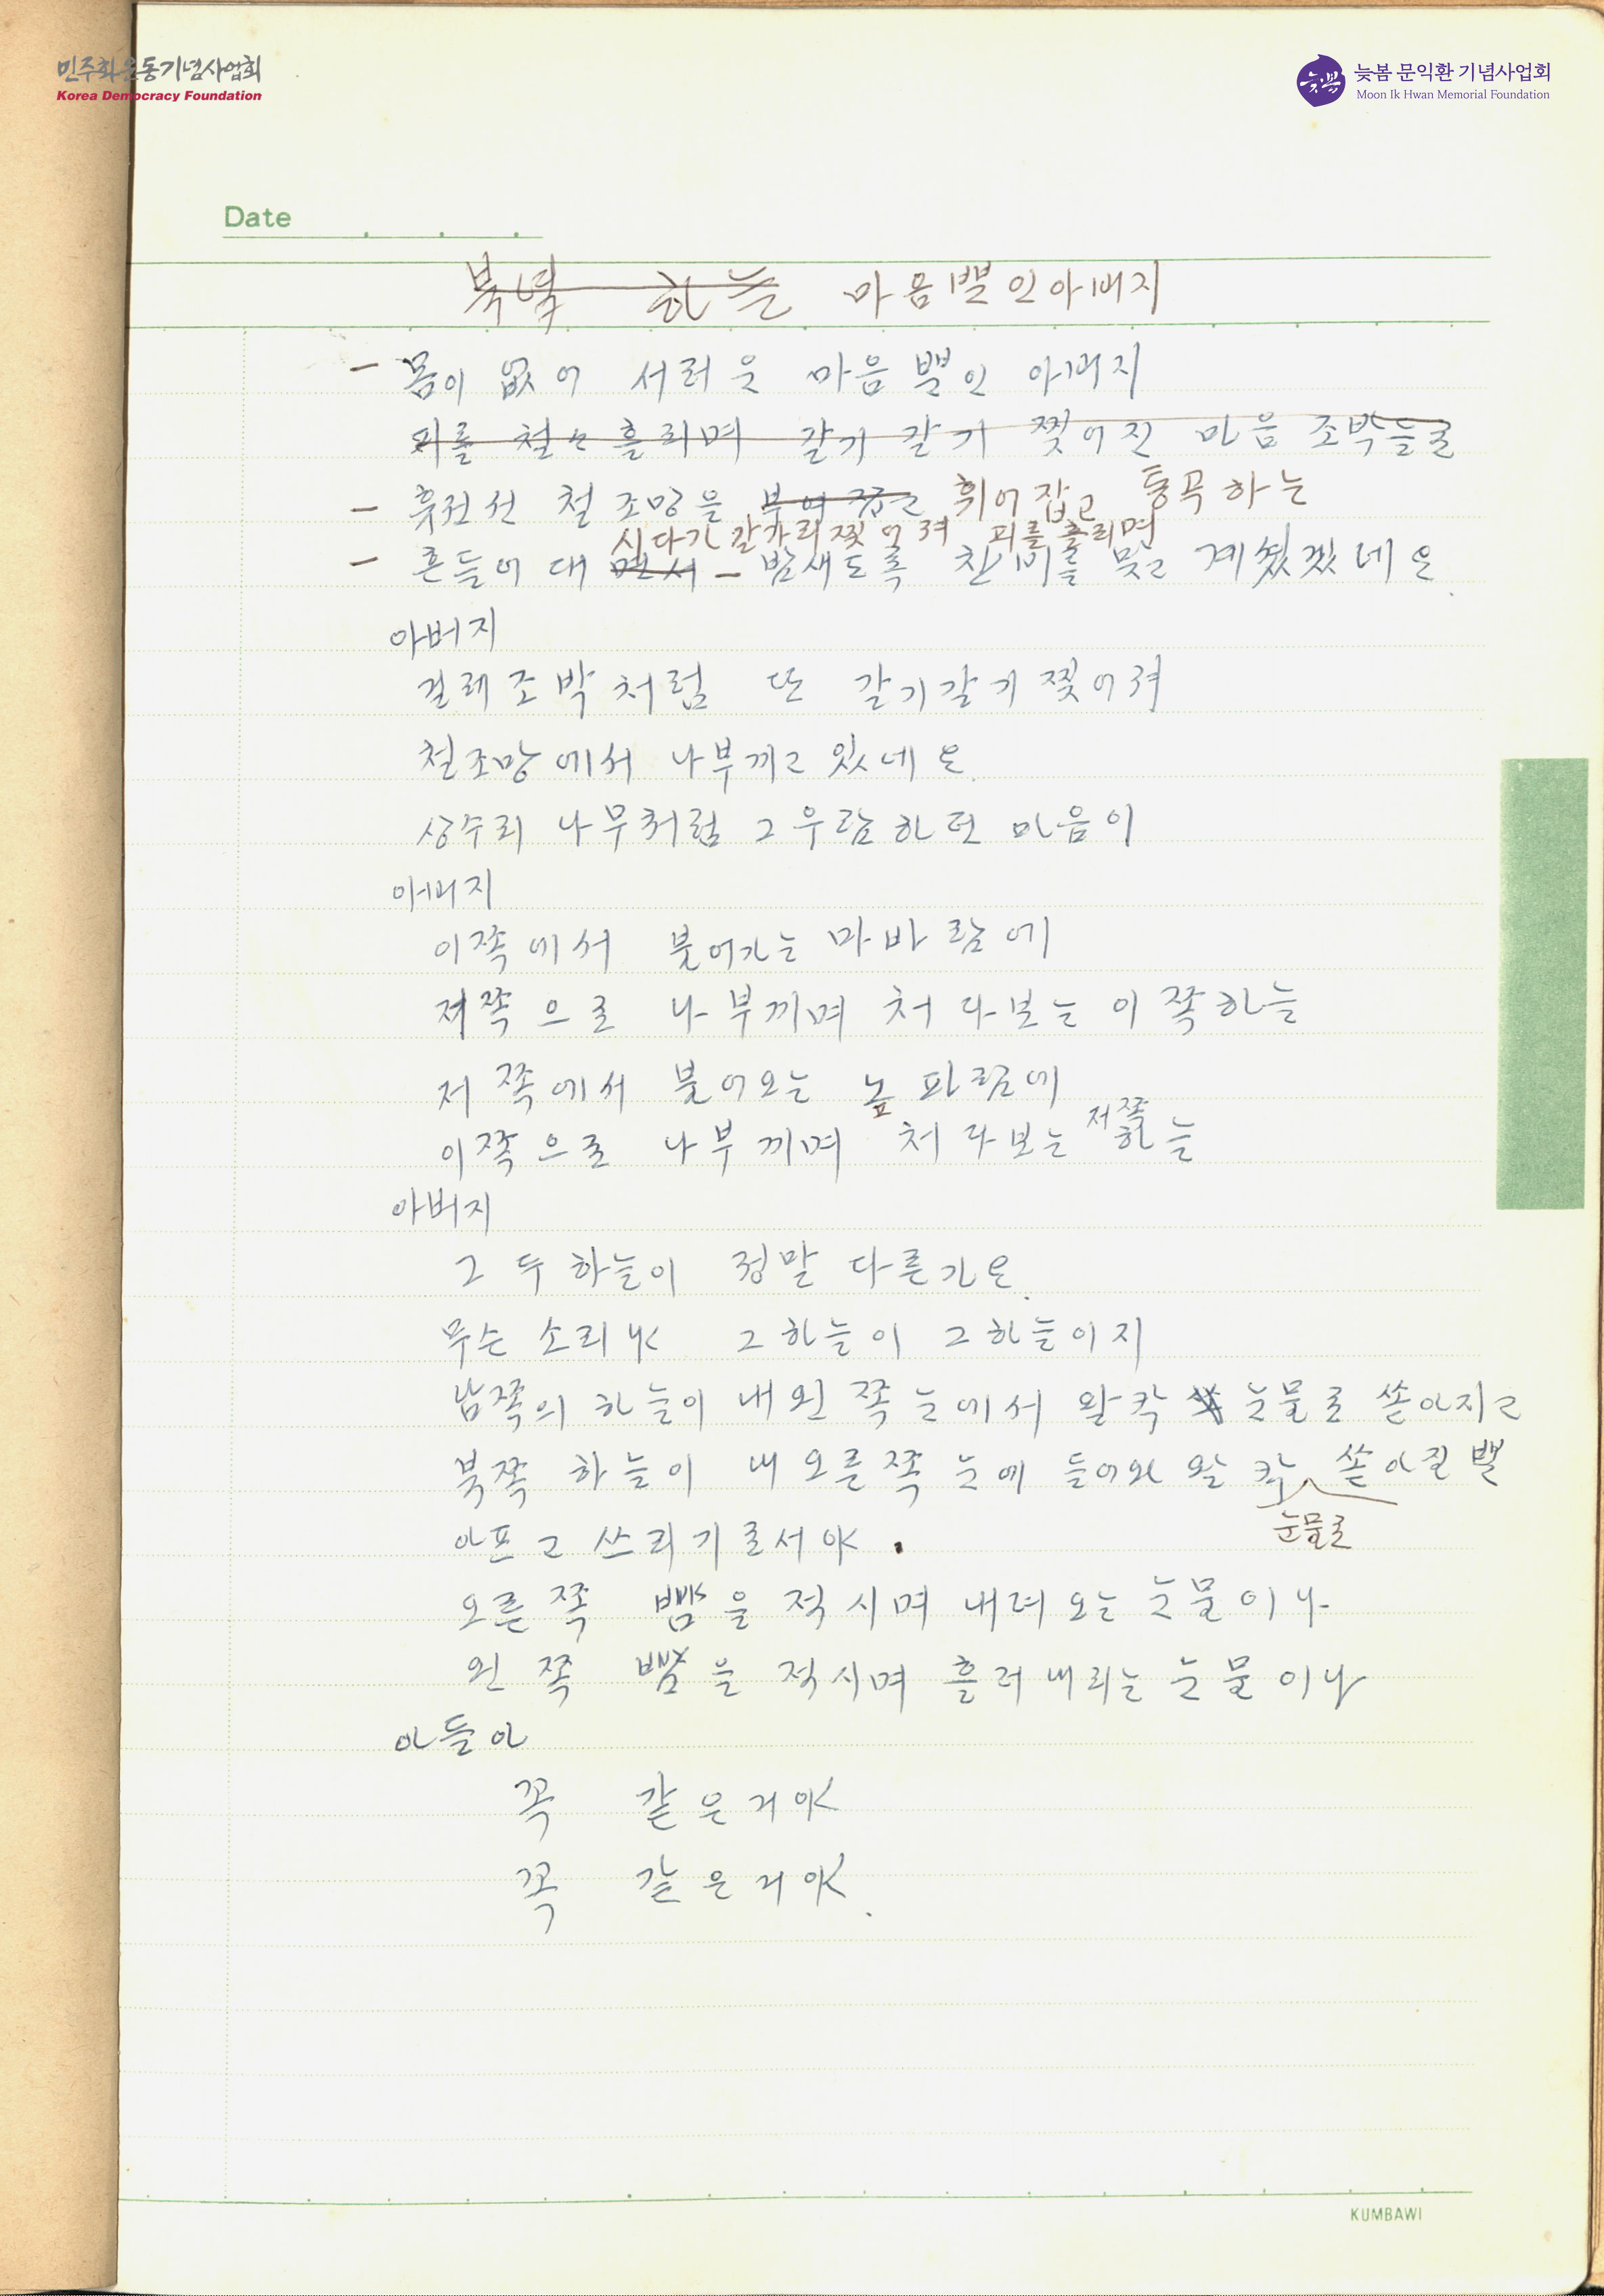 민주화운동기념사업회
Korea Democracy Foundation
늦봄
늦봄 문익환 기념사업회
Moon Ik Hwan Memorial Foundation
Date
북녘 하늘 마음뿐인아버지
- 몸이 없어 서러운 마음뿐인 아버지
피를 철철 흘리며 갈기 갈기 찢어진 마음 조박들로
- 휴전선 철조망을 부여잡고 휘어잡고 통곡하는
시다가 갈가리 찢어져 피를 흘리며
- 흔들어 대면서 - 밤새도록 찬비를 맞고 계셨겠네요.
아버지
걸레조박처럼 또 갈기갈기 찢어져
철조망에서 나부끼고 있네요.
상수리 나무처럼 그 우람하던 마음이
아버지
이쪽에서 불어가는 마바람에
저쪽으로 나부끼며 처다보는 이쪽하늘
저쪽에서 불어오는 높파람에
저쪽
이쪽으로 나부끼며 처다보는 하늘
아버지
그 두 하늘이 정말 다른가요.
무슨 소리냐 그 하늘이 그 하늘이지
남쪽의 하늘이 내 왼쪽 눈에서 왈칵 눈물로 쏟아지고
북쪽 하늘이 내 오른쪽 눈에 들어와 왈칵 쏟아질 뿐
눈물로
아프고 쓰리기로서야.
오른쪽 뺨을 적시며 내려오는 눈물이나
왼쪽 뺨을 적시며 흘러내리는 눈물이나
아들아
꼭 같은거야
꼭 같은거야.
KUMBAWI